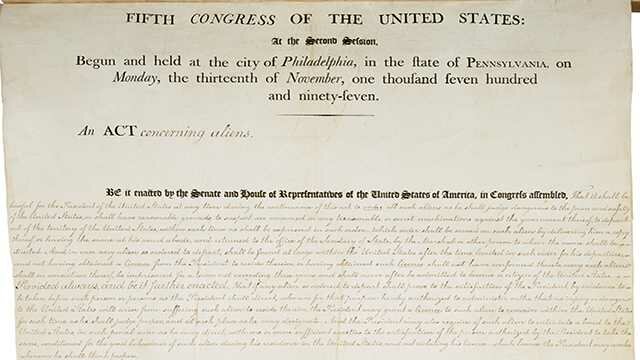 FIFTH CONGRESS OF THE UNITED STATES:
At the Second Session,
Begun and held at the city of Philadelphia, in the ſtate of PENNSYLVANIA, on
Monday, the thirteenth of November, one thouſand ſeven hundred
and ninety-ſeven.
An ACT concerning aliens.
BE it enacted by the Senate and House of Representatives of the United States of America, in Congress assembled, That it shall be
lawful for the President of the United States at any time during the continuance of this act to order all such aliens as he shall judge dangerous to the peace and safety
of the United States, or shall have reasonable grounds to suspect are concerned in any treasonable or secret machinations against the government thereof to depart
out of the territory of the United States, within such time as shall be expressed in such order, which order shall be served on such alien by delivering him a copy
thereof or leaving the same at his usual abode, and returned to the office of the Secretary of State, by the Marshal or other person to whom the same shall be
directed. And in case any alien so ordered to depart, shall be found at large within the United States after the time limited in such order for his departure
Provided always, and be it further enacted, that if any alien so ordered to depart shall prove to the satisfaction of the President by evidence to
be taken before such person or persons as the President shall direct, who are for that purpose hereby authorized to administer oaths, that no injury or danger
to the United States will arise from suffering such alien to reside therein, the President may grant a licence to such alien to remain within the United States
for such time as he shall judge proper, and at such place as he may designate. And the President may also require of such alien to enter into a bond to the
United States in such penal sum as he may direct with one or more sufficient sureties to the satisfaction of the person authorized by the President to take the
same, conditioned for the good behaviour of such alien during his residence in the United States and not violating his licence which licence the President may revoke
whenever he shall think proper.